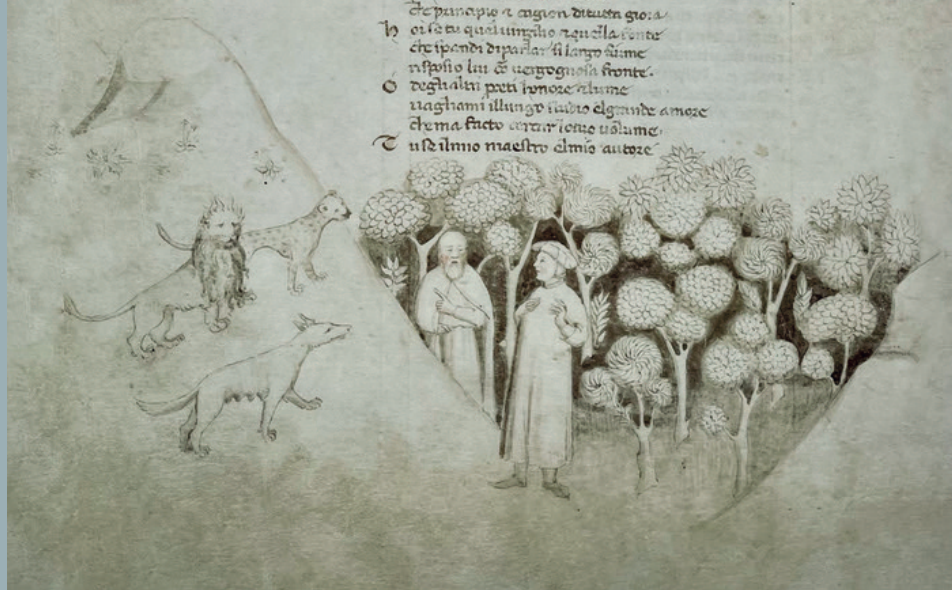 che principio ⁊ cagion di tucta gioia
H or se tu quel uirgilio ⁊ quella fonte
che spandi di parlar si largo fiume
risposio lui cō uergognosa fronte.
O deglialtri poeti honore ⁊ lume
uagliami illungo studio elgrande amore
che ma facto cercar lotuo uolume.
T use ilmio maestro elmio autore